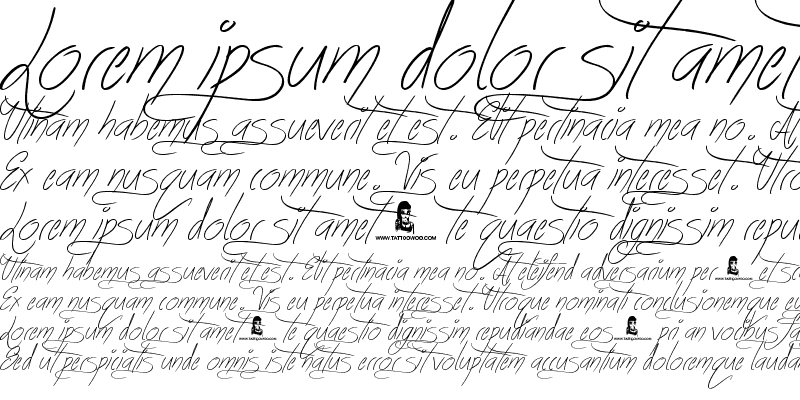 Lorem ipsum dolor sit amet
Utinam habemus assueverit et est. Elit pertinacia mea no. At
Ex eam nusquam commune. Vis eu perpetua interesset. Utro
Lorem ipsum dolor sit amet WWW.TATTOOWOO.COM te quaestio dignissim repu
Utinam habemus assueverit et est. Elit pertinacia mea no. At eleifend adversarium per et
Ex eam nusquam commune. Vis eu perpetua interesset. Utroque nominati conclusionemque eu
Lorem ipsum dolor sit amet te quaestio dignissim repudiandae eos pri an vocibus
Sed ut perspiciatis unde omnis iste natus error sit voluptatem accusantium doloremque lauda